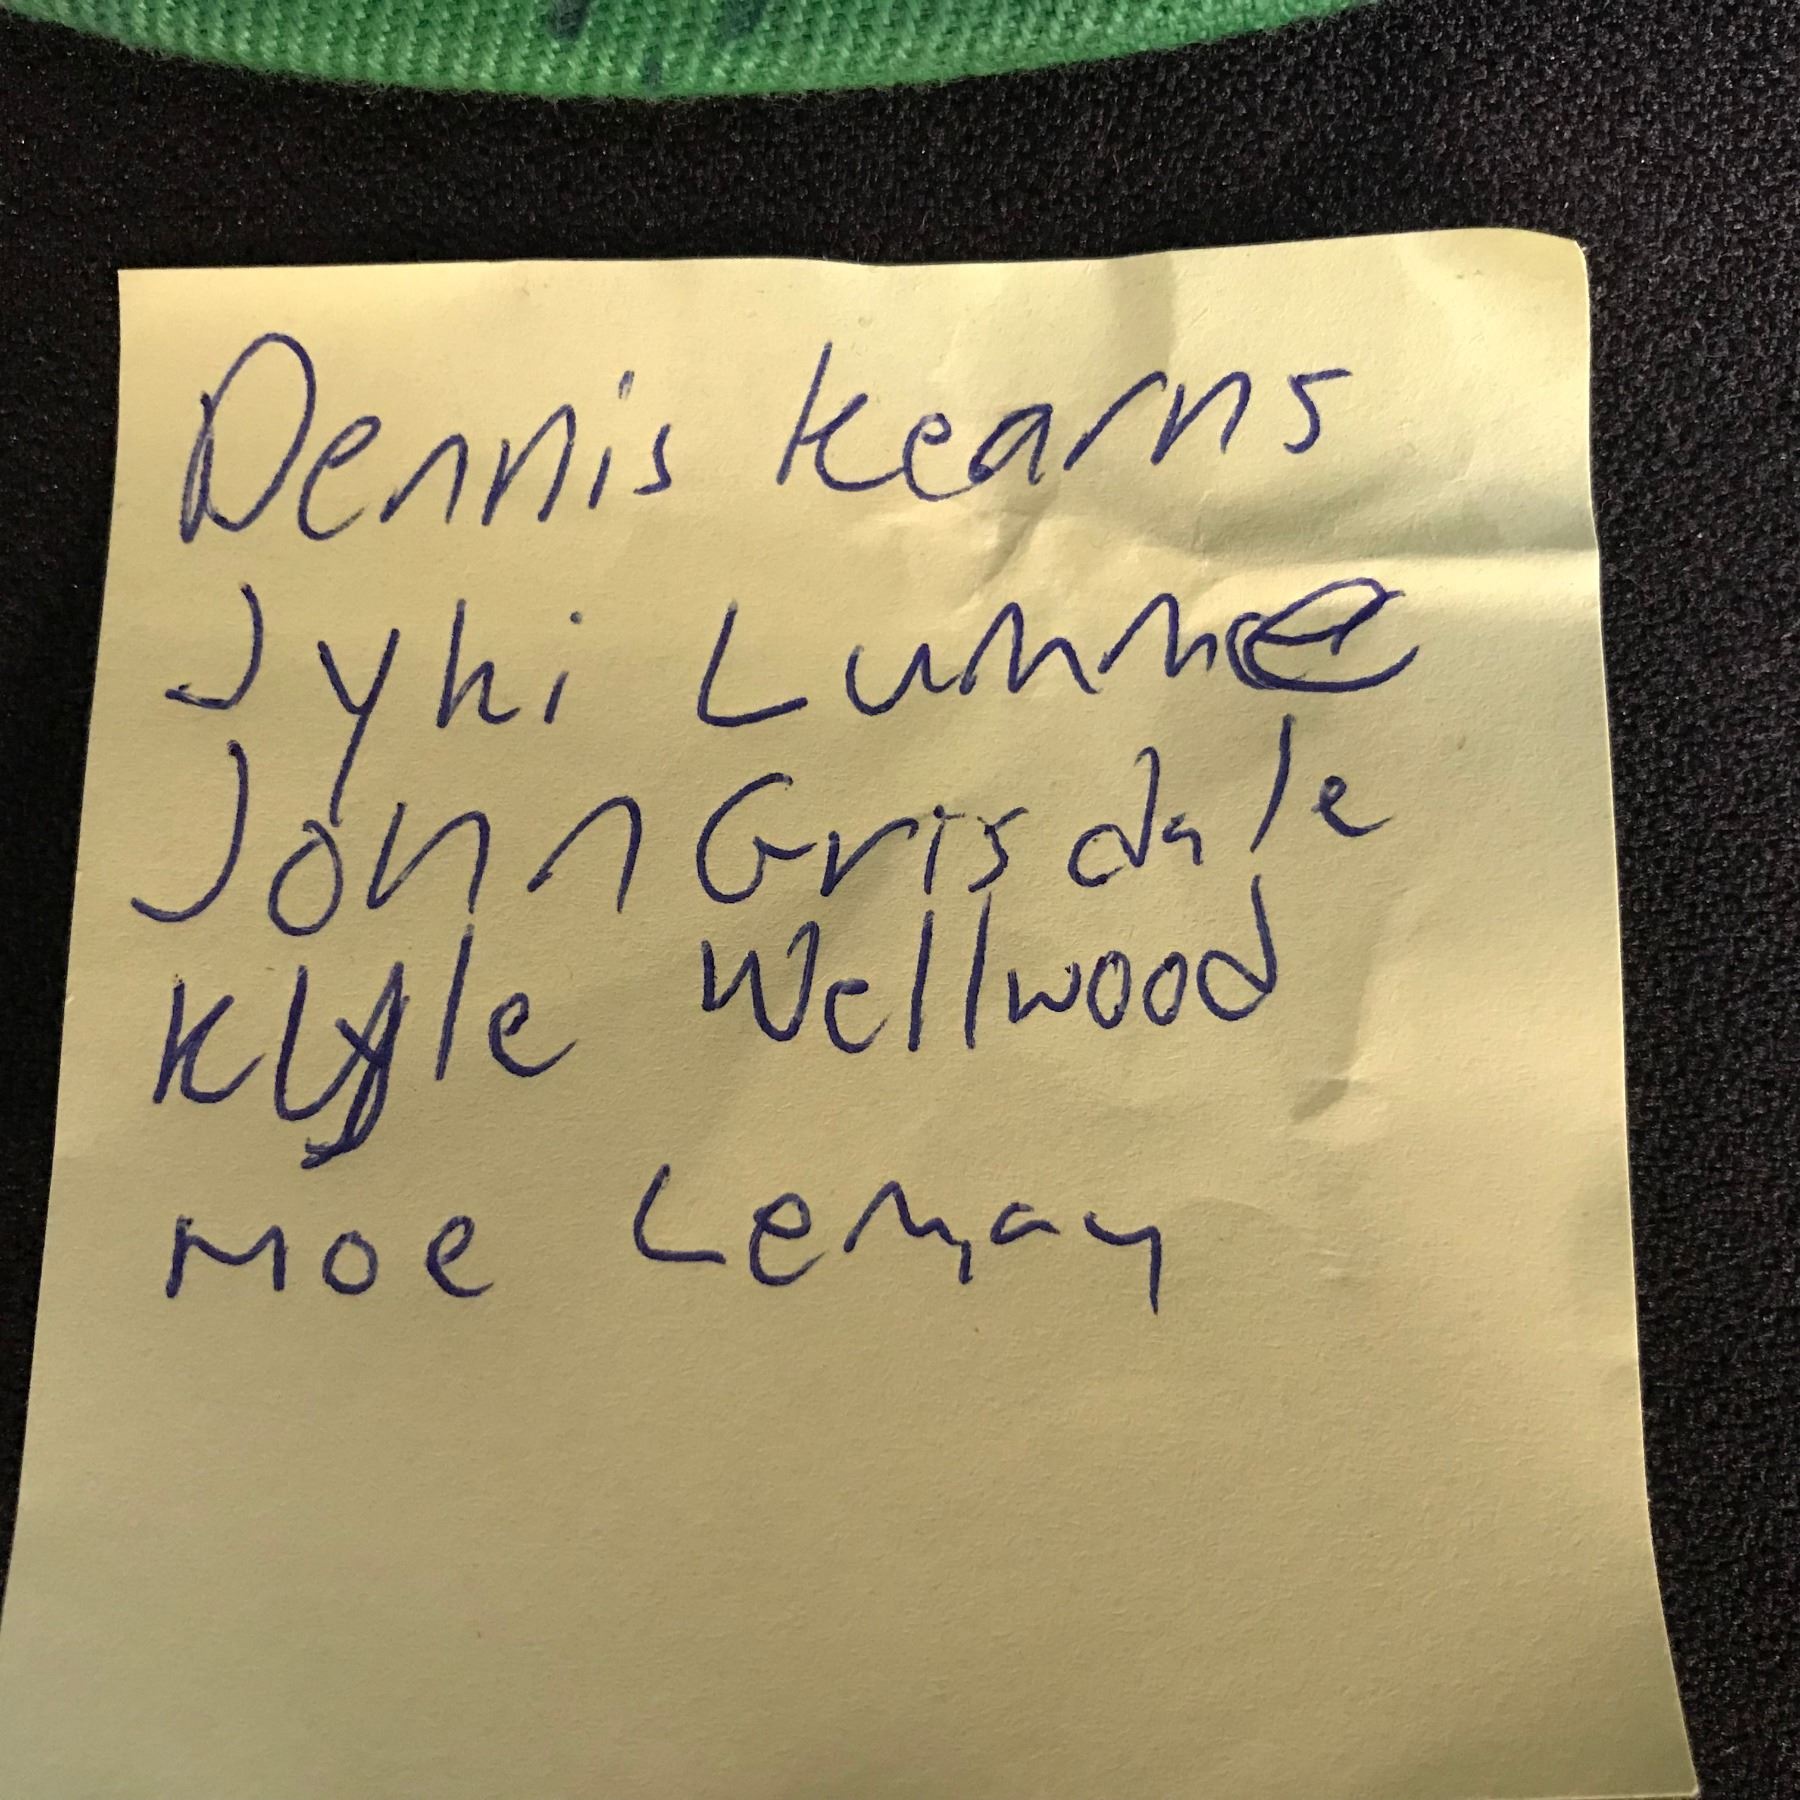 Dennis Kearns
Jyki Lumme
John Grisdale
Kyle Wellwood
Moe Lemay